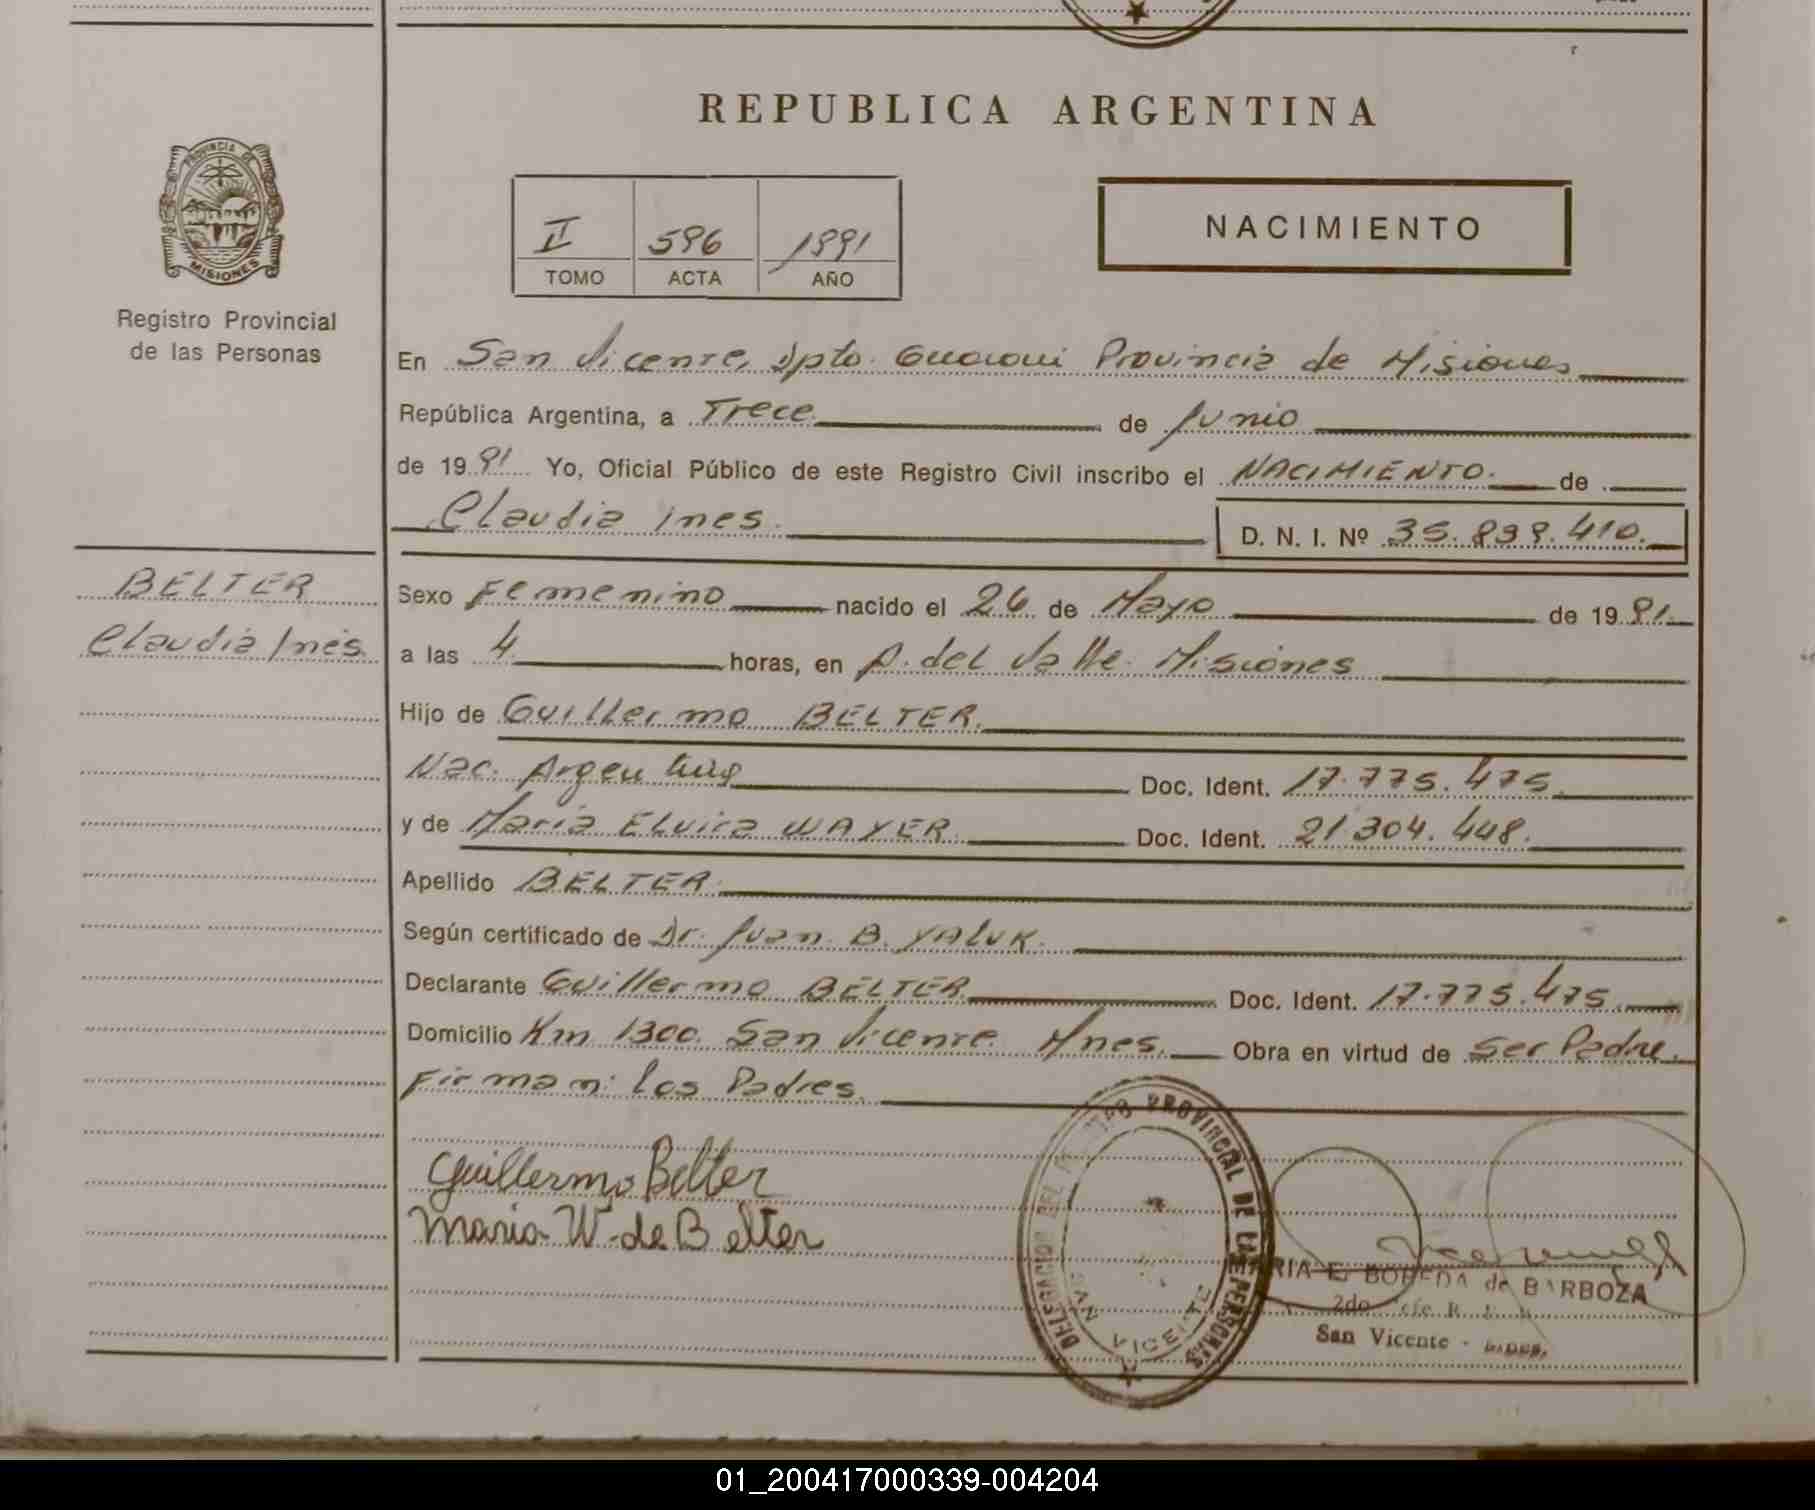 REPUBLICA ARGENTINA
PROVINCIA DE
MISIONES
Registro Provincial
de las Personas
II 596 1991
TOMO ACTA AÑO
NACIMIENTO
En San Vicente, Dpto. Guaraní Provincia de Misiones
República Argentina, a Trece de Junio
de 1991 Yo, Oficial Público de este Registro Civil inscribo el NACIMIENTO de
Claudia Ines
D. N. I. Nº 35.839.410.
BELTER
Claudia Inés
Sexo Femenino nacido el 26 de Mayo de 1991.
a las 4 horas, en A. del Valle. Misiones
Hijo de Guillermo BELTER.
Nac. Argentina Doc. Ident. 17.775.475.
y de Maria Elvira WAYER. Doc. Ident. 21.304.448.
Apellido BELTER.
Según certificado de Dr. Juan. B. YALUK.
Declarante Guillermo BELTER Doc. Ident. 17.775.475.
Domicilio Km 1300. San Vicente Mnes. Obra en virtud de Ser Padre.
Firman: los Padres.
Guillermo Belter
Maria W. de Belter
DELEGACION DEL PROVINCIAL DE LAS PERSONAS
SAN VICENTE
MARIA E. BOBEDA de BARBOZA
2do
San Vicente -
01_200417000339-004204